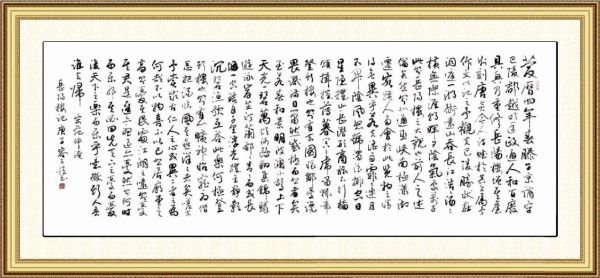 慶曆四年春滕子京謫守
巴陵郡越明年政通人和百廢
具興乃重修岳陽樓增其舊
制刻唐賢今人詩賦於其上屬予
作文以記之予觀夫巴陵勝狀在
洞庭一湖銜遠山吞長江浩浩湯湯
橫無際涯朝暉夕陰氣象萬千
此則岳陽樓之大觀也前人之述
備矣然則北通巫峽南極瀟湘
遷客騷人多會於此覽物之情
得無異乎若夫霪雨霏霏連月
不開陰風怒號濁浪排空日
星隱耀山岳潛形商旅不行檣
傾楫摧薄暮冥冥虎嘯猿啼
登斯樓也則有去國懷鄉憂讒
畏譏滿目蕭然感極而悲者矣
至若春和景明波瀾不驚上下
天光一碧萬頃沙鷗翔集錦鱗
游泳岸芷汀蘭郁郁青青而或長
煙一空皓月千里浮光躍金靜影
沉璧漁歌互答此樂何極登
斯樓也則有心曠神怡寵辱偕
忘把酒臨風其喜洋洋者矣嗟夫
予嘗求古仁人之心或異二者之為
何哉不以物喜不以己悲居廟堂之
高則憂其民處江湖之遠則憂
其君是進亦憂退亦憂然則何時
而樂耶其必曰先天下之憂而憂
後天下之樂而樂乎噫微斯人吾
誰與歸 宋范仲淹
岳陽樓記